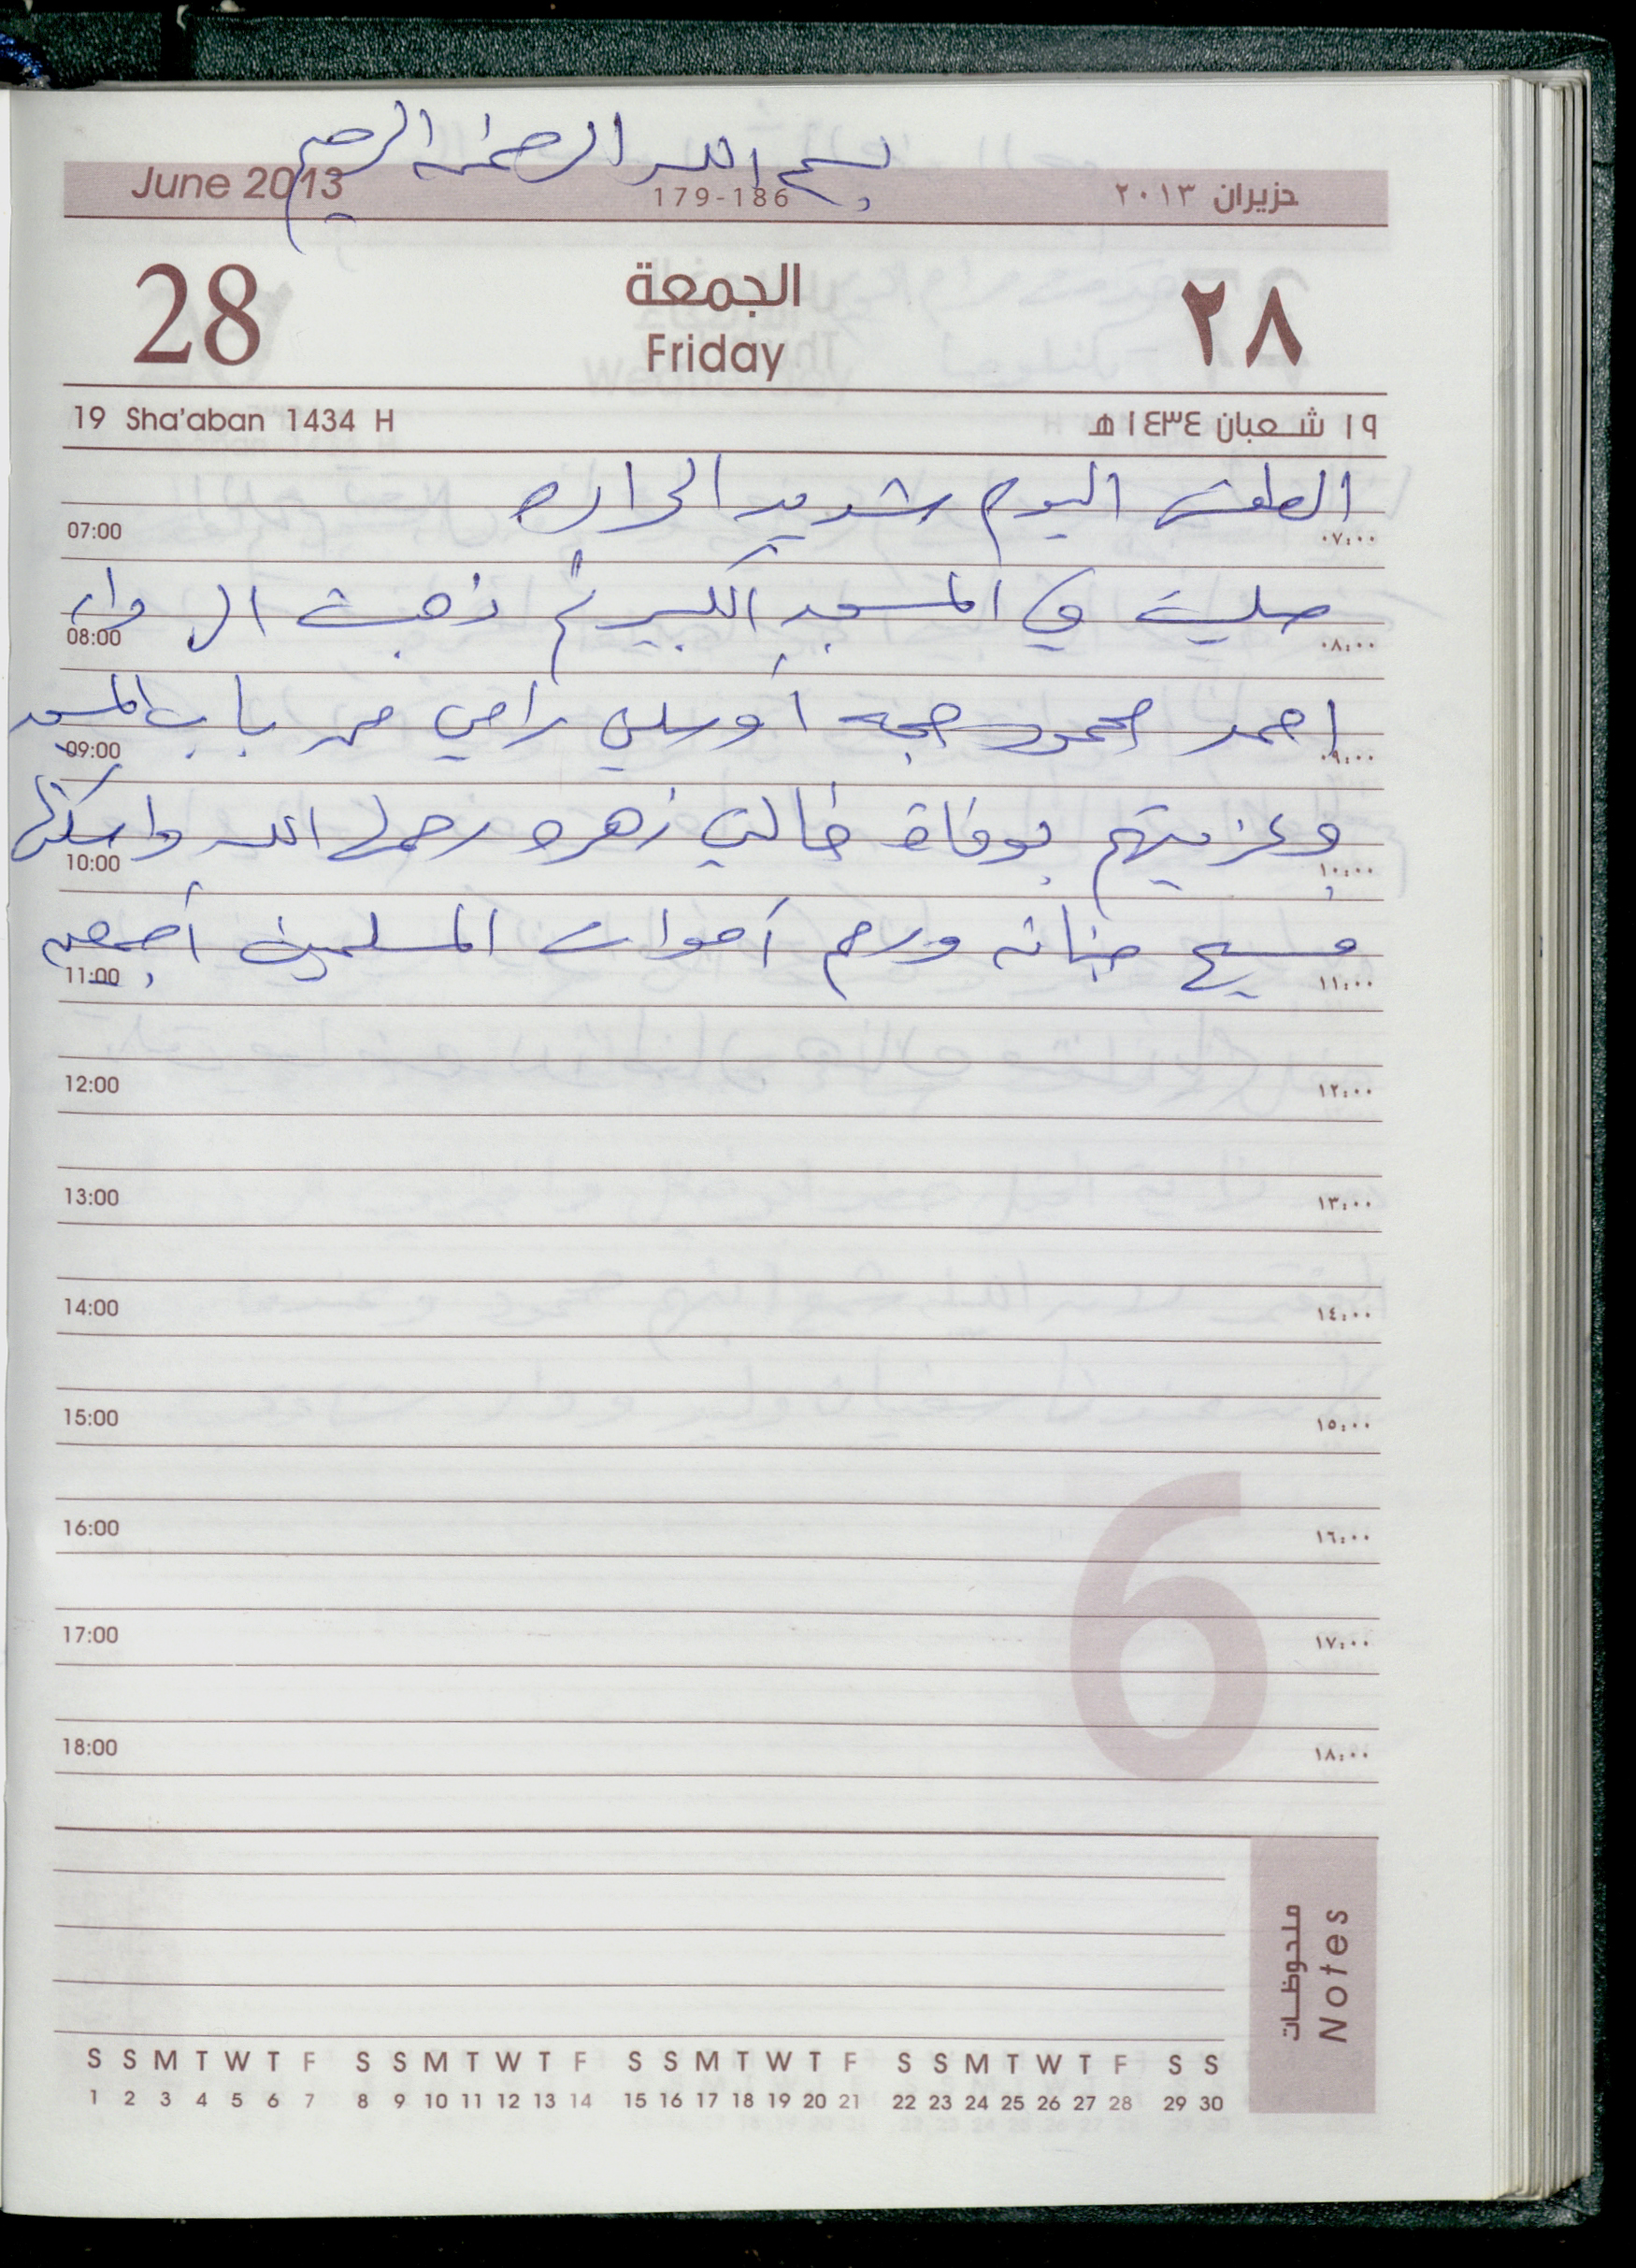 بسم الله الرحمن الرحيم
June 2013 179-186 حزيران ٢٠١٣
28 الجمعة ٢٨
Friday
19 Sha'aban 1434 H ١٩ شعبان ١٤٣٤ هـ
الطقس اليوم شديد الحراره
07:00 ٠٧:٠٠
صليت في المسجد الكبير ثم ذهبت الى دار
08:00 ٠٨:٠٠
احمد محمود حجه أوصلني رامي من باب المسجد
09:00 ٠٩:٠٠
وعزيتهم بوفاة خالتي زهره رحمها الله واسكنها
10:00 ١٠:٠٠
فسيح جناته ورحم أموات المسلمين أجمعين
11:00 ١١:٠٠
12:00 ١٢:٠٠
13:00 ١٣:٠٠
14:00 ١٤:٠٠
15:00 ١٥:٠٠
16:00 ١٦:٠٠
17:00 ١٧:٠٠
18:00 ١٨:٠٠
6
ملحوظات
Notes
S S M T W T F S S M T W T F S S M T W T F S S M T W T F S S
1 2 3 4 5 6 7 8 9 10 11 12 13 14 15 16 17 18 19 20 21 22 23 24 25 26 27 28 29 30